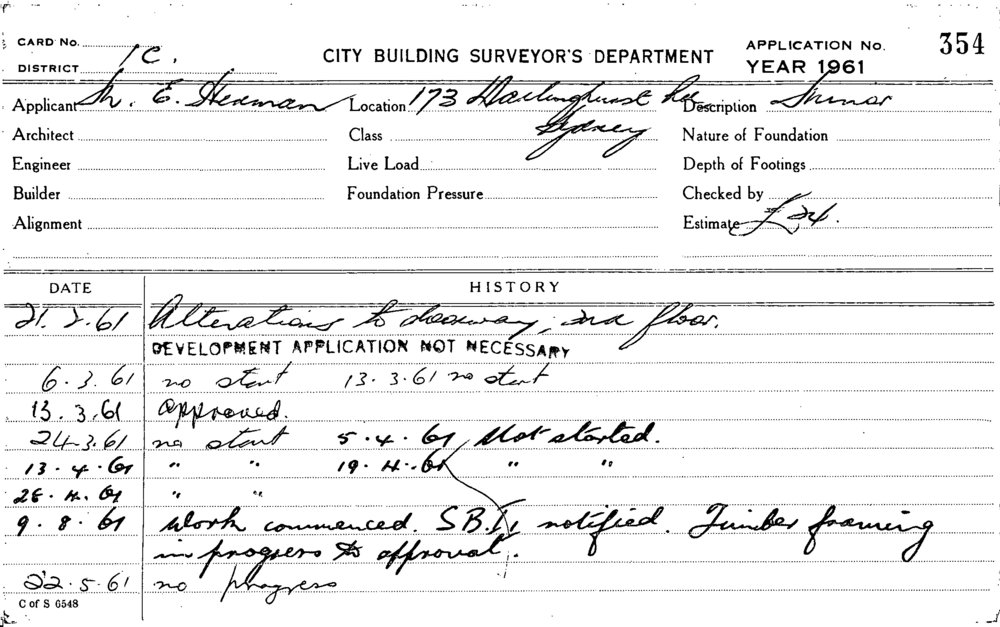 CARD No. 1C. CITY BUILDING SURVEYOR'S DEPARTMENT APPLICATION No. 354
DISTRICT YEAR 1961
Applicant M. E. Herman Location 173 Darlinghurst Rd Description Minor
Architect Class Sydney Nature of Foundation
Engineer Live Load Depth of Footings
Builder Foundation Pressure Checked by
Alignment Estimate £24.
DATE HISTORY
21.2.61 Alterations to doorway, 2nd floor.
DEVELOPMENT APPLICATION NOT NECESSARY
6.3.61 no start 13.3.61 no start
13.3.61 Approved.
24.3.61 no start 5.4.61 Not started.
13.4.61 " " 19.4.61 " "
28.4.61 " "
9.8.61 Work commenced. S.B.I. notified. Timber framing
in progress to approval.
22.5.61 no progress
C of S 6548